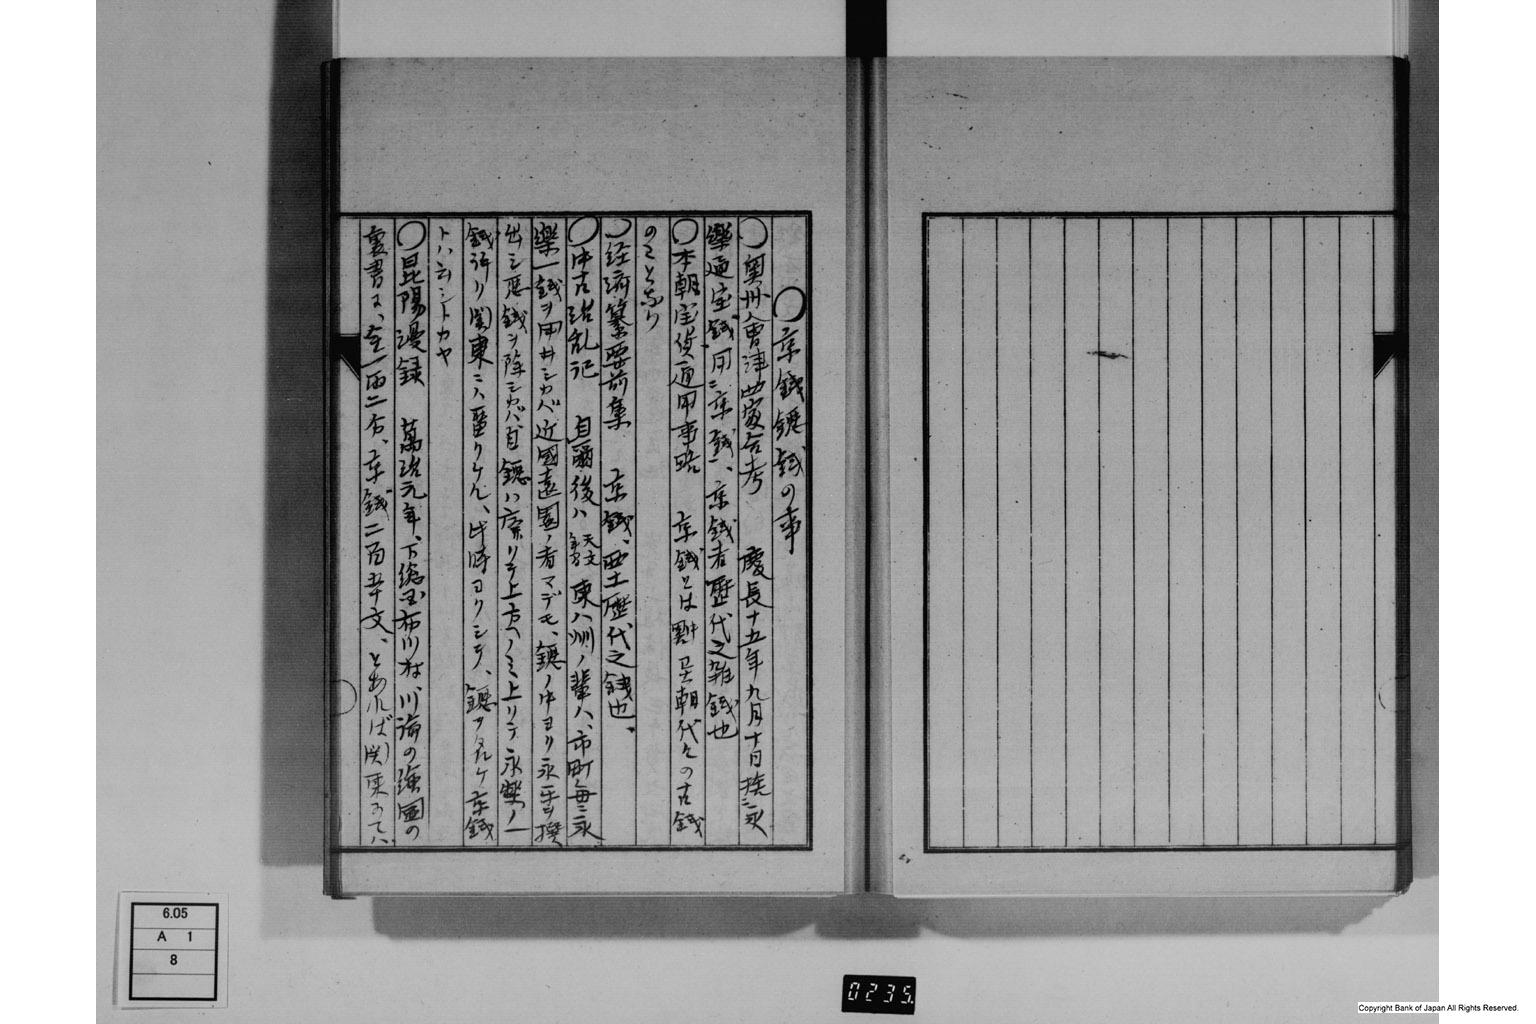 〇京銭鐚銭の事
〇奥州會津四家合考 慶長十五年九月十日捨永
樂通宝銭用京銭、京銭者歴代之雑銭也
〇本朝宝貨通用事略 京銭とは異朝代々の古銭
のことなり
〇経済纂要前集 京銭、西土歴代之銭也、
〇中古治乱記 自爾後ハ天文年号東八洲ノ輩ハ、市町毎ニ永
樂一銭ヲ用井シカバ、近國遠國ノ者マデモ、鐚ノ中ヨリ永樂ヲ撰
出シ悪銭ヲ除シカバ、自鐚ハ廃リテ上方ヘノミ上リテ永樂ノ一
銭許リ関東ニハ留リケル、此時ヨリシテ、鐚ヲ名ケ京銭
トハ云シトカヤ
〇昆陽漫録 萬治元年、下総国布川村、川論の強圖の
裏書に、金一両二分、京銭二百五十文、とあれば関東にてハ
6.05
A 1
8
0235.
Copyright Bank of Japan All Rights Reserved.